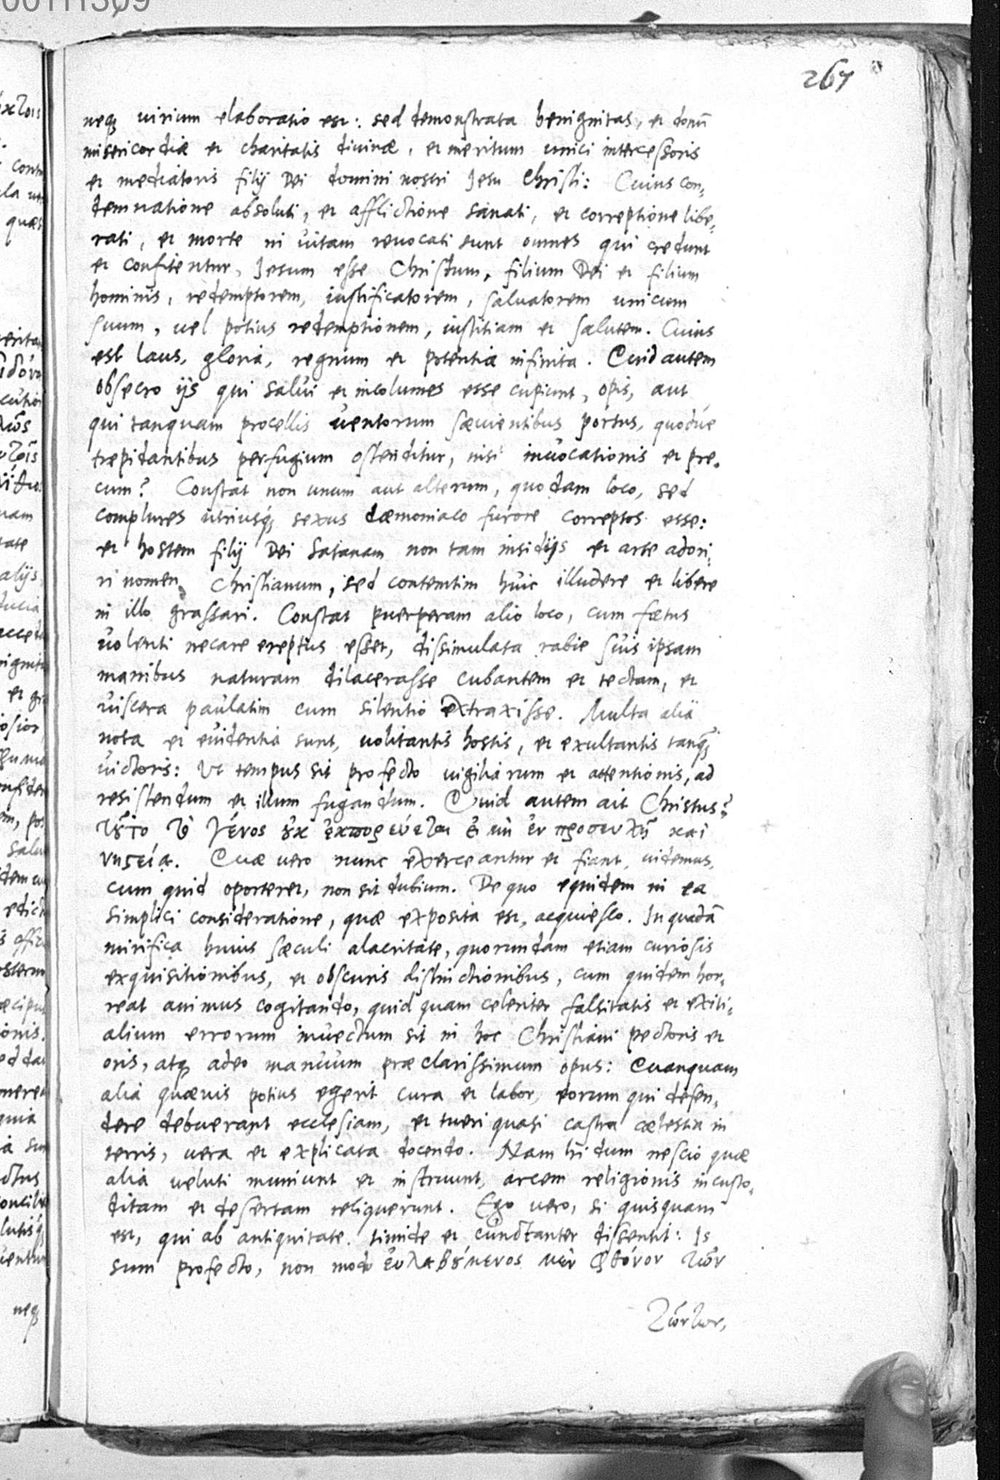 267
neq́ virium elaboratio est: sed demonstrata benignitas, et donũ
misericordiæ et charitatis divinæ, et meritum unici intercessoris
et mediatoris filij Dei domini nostri Jesu Christi: Cuius con,
demnatione absoluti, et afflictione sanati, et correptione libe,
rati, et morte in vitam revocati sunt omnes qui credunt
et confitentur, Jesum esse Christum, filium Dei et filium
hominis, redemptorem, iustificatorem, salvatorem unicum
suum, vel potius redemptionem, iustitiam et salutem. Cuius
est laus, gloria, regnum et potentia infinita. Quid autem
obsecro ijs qui salvi et incolumes esse cupiunt, opis, aut
qui tanquam procellis ventorum sævientibus portus, quodve
trepidantibus perfugium ostenditur, nisi invocationis et pre,
cum? Constat non unum aut alterum, quodam loco, sed
complures utriusq́ sexus dæmoniaco furore correptos esse:
et hostem filij Dei Satanam non tam insidijs et arte adori,
ri nomen Christianum, sed contemtim huic illudere et libere
in illo grassari. Constat puerperam alio loco, cum fœtus
volenti necare ereptus esset, dissimulata rabie suis ipsam
manibus naturam dilacerasse cubantem et tectam, et
viscera paulatim cum silentio extraxisse. Multa alia
nota et evidentia sunt, volitantis hostis, et exultantis tanq́
victoris: Ut tempus sit profecto vigiliarum et attentionis, ad
resistendum et illum fugandum. Quid autem ait Christus?
τȣ̃το τὸ γένος ȣ̓κ ἐκπορεύεται εἰ μὴ ἐν προσευχῇ καὶ
νηστείᾳ. Quæ vero nunc exerceantur et fiant, videmus,
cum quid oporteret, non sit dubium. De quo equidem in ea
simplici consideratione, quæ exposita est, acquiesco. In quadã
mirifica huius sæculi alacritate, quorundam etiam curiosis
exquisitionibus, et obscuris distinctionibus, cum quidem hor,
reat animus cogitando, quid quam celeriter falsitatis et exiti,
alium errorum invectum sit in hoc Christiani pectoris et
oris, atq́ adeo manuum præclarissimum opus: Quanquam
alia quævis potius egerit cura et labor, eorum qui defen,
dere debuerant ecclesiam, et tueri quasi castra cœlestia in
terris, vera et explicata docendo. Nam hi dum nescio quæ
alia veluti muniunt et instruunt, arcem religionis incusto,
ditam et desertam reliquerunt. Ego vero, si quisquam
est, qui ab antiquitate timide et cunctanter dissentit: Is
sum profecto, non modo εὐλαβȣ́μενος μὲν φθόνον τῶν
ζώντων,